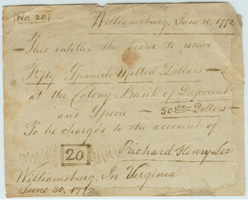 No. 20
Williamsburg, June 30, 1772
This entitles the bearer to receive
Fifty Spanish Milled Dollars —
at the Colony Bank of Deposit
and Specie — 50 Dollars —
To be charged to the account of
20
Richard Henry Lee
Williamsburg, Virginia
June 30, 177